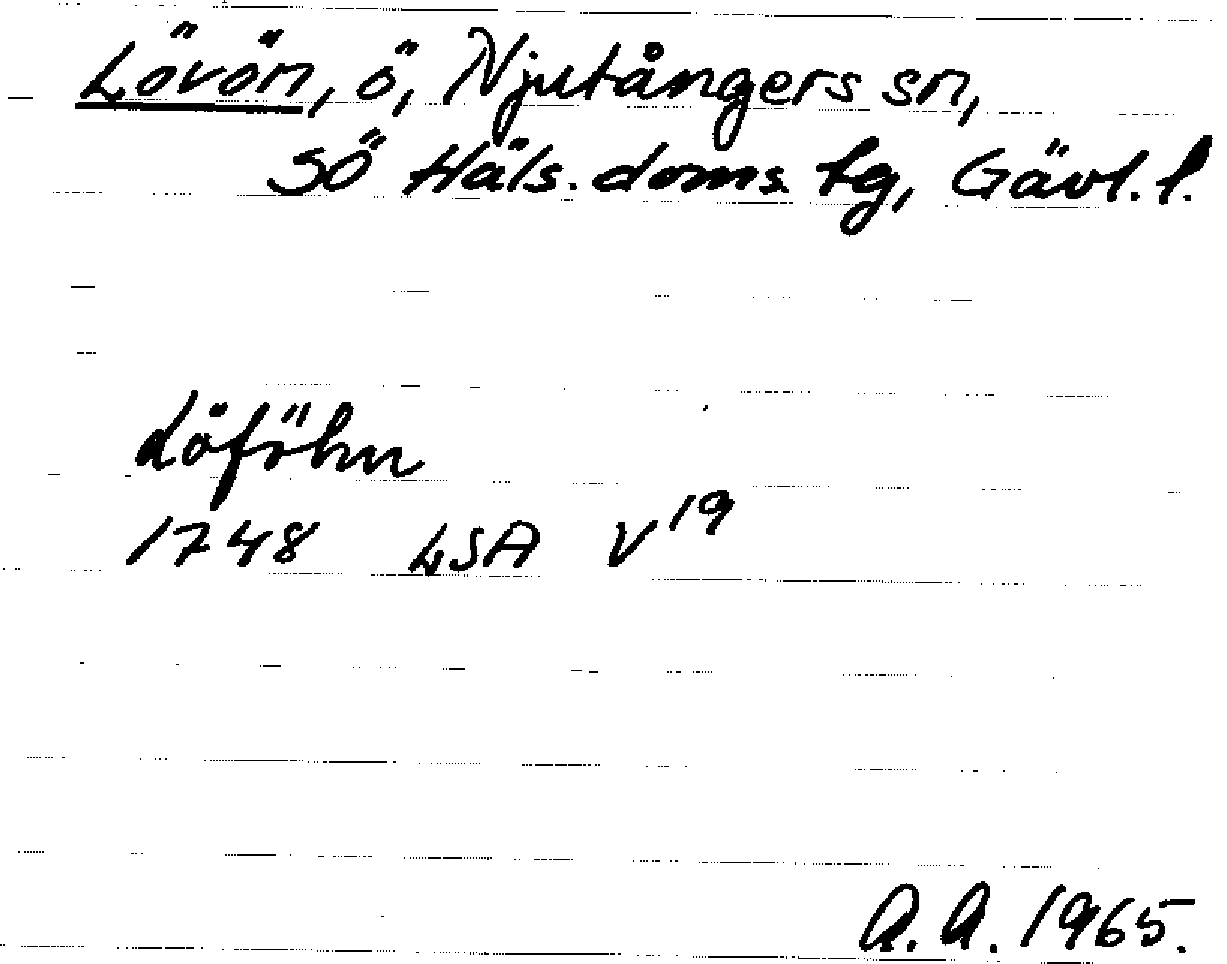 Lövön, ö, Njutångers sn,
SÖ Häls. doms. tg, Gävl. l.
Löföhn
1748 LSA V19
A.A. 1965.